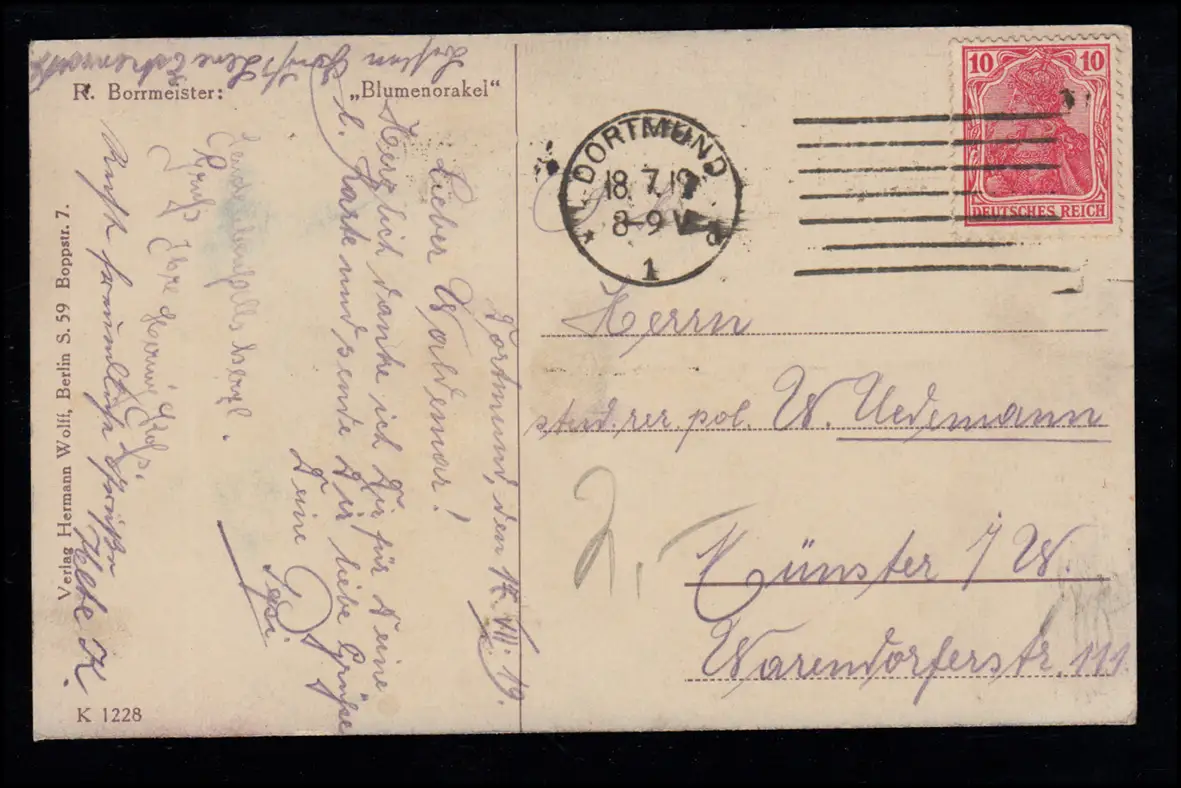 R. Borrmeister: „Blumenorakel“
Verlag Hermann Wolff, Berlin S. 59 Boppstr. 7.
K 1228
DORTMUND
18.7.19
8-9 V
* 1 d
10 10
DEUTSCHES REICH
Herrn
stud. rer. pol. W. Uedemann
Münster i/W.
Warendorferstr. 111.
2,-
Dortmund, den 17. VII. 19.
Lieber Waldemar!
Herzlich danke ich Dir für Deine
l. Karte und sende Dir liebe Grüße
Deine
Gruß Ihre
Recht
Grüße